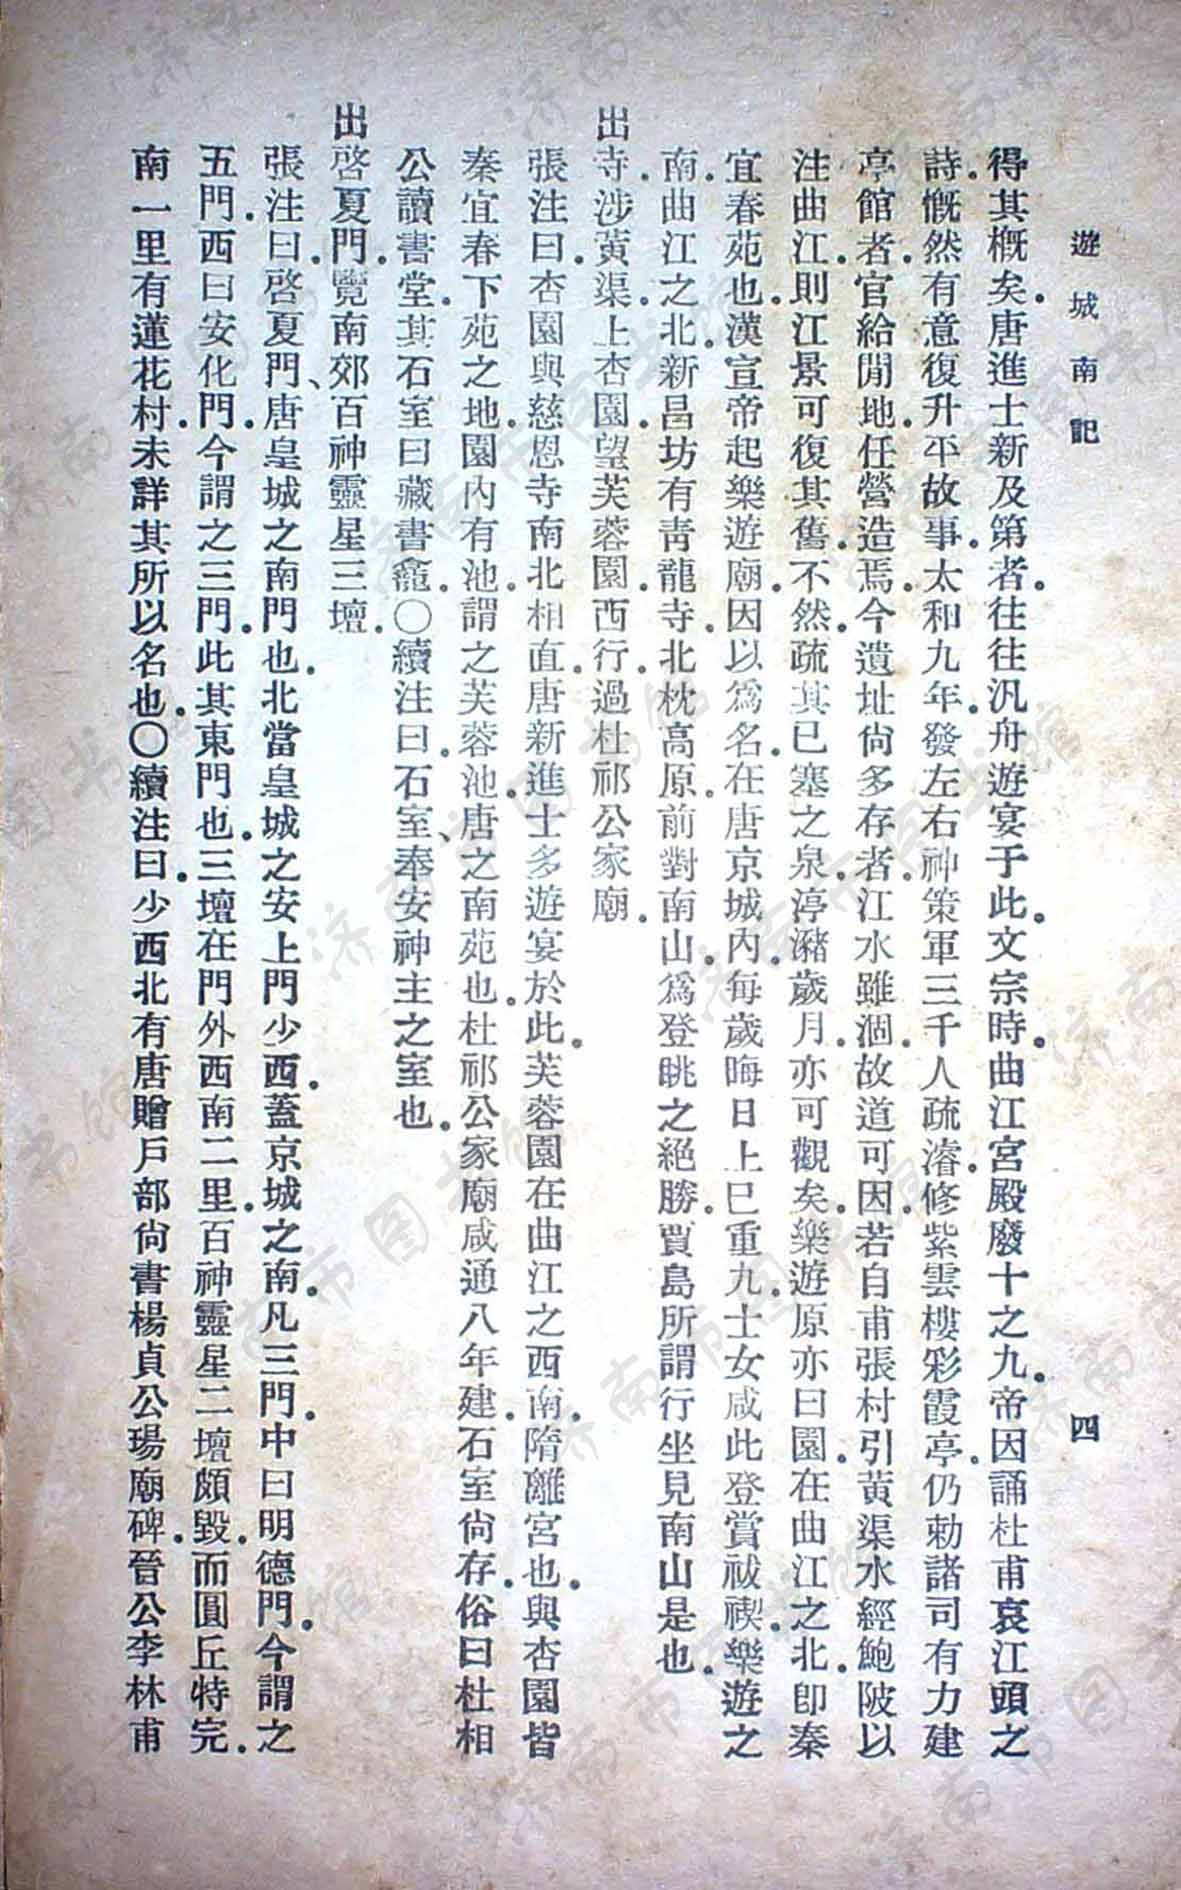 遊城南記
四
得其概矣唐進士新及第者往往汎舟遊宴于此文宗時曲江宮殿廢十之九帝因誦杜甫哀江頭之
詩慨然有意復升平故事太和九年發左右神策軍三千人疏濬修紫雲樓彩霞亭仍勅諸司有力建
亭館者官給閒地任營造焉今遺址尙多存者江水雖涸故道可因若自甫張村引黃渠水經鮑陂以
注曲江則江景可復其舊不然疏其已塞之泉渟瀦歲月亦可觀矣樂遊原亦曰園在曲江之北卽秦
宜春苑也漢宣帝起樂遊廟因以爲名在唐京城內每歲晦日上巳重九士女咸此登賞祓禊樂遊之
南曲江之北新昌坊有靑龍寺北枕高原前對南山爲登眺之絕勝賈島所謂行坐見南山是也
出寺涉黃渠上杏園望芙蓉園西行過杜祁公家廟
張注曰杏園與慈恩寺南北相直唐新進士多遊宴於此芙蓉園在曲江之西南隋離宮也與杏園皆
秦宜春下苑之地園內有池謂之芙蓉池唐之南苑也杜祁公家廟咸通八年建石室尙存俗曰杜相
公讀書堂其石室曰藏書龕〇續注曰石室、奉安神主之室也
出啓夏門覽南郊百神靈星三壇
張注曰啓夏門、唐皇城之南門也北當皇城之安上門少西蓋京城之南凡三門中曰明德門今謂之
五門西曰安化門今謂之三門此其東門也三壇在門外西南二里百神靈星二壇頗毀而圓丘特完
南一里有蓮花村未詳其所以名也〇續注曰少西北有唐贈戶部尙書楊貞公瑒廟碑晉公李林甫
济南市图书馆